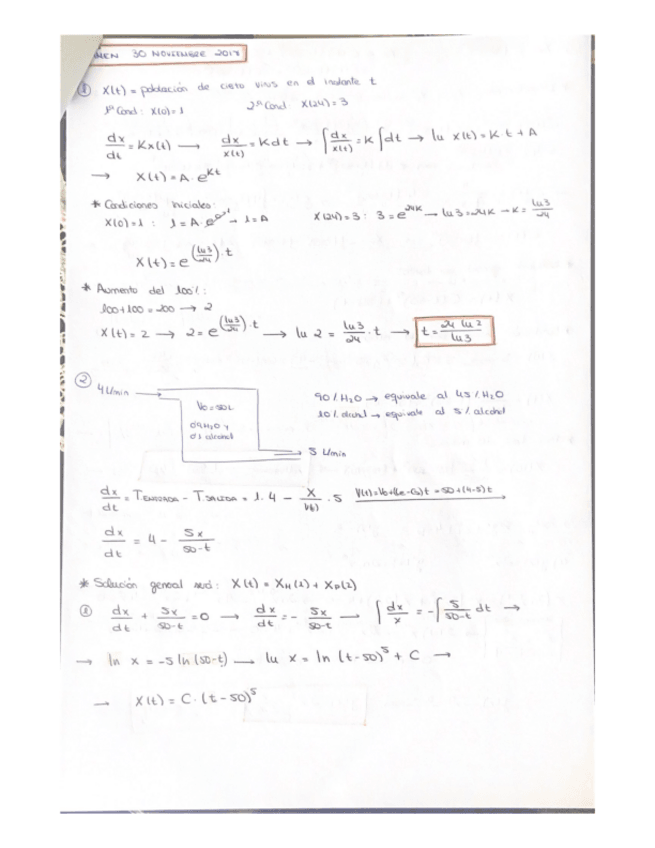 MEN 30 NOVIEMBRE 2017
① X(t) = población de cierto virus en el instante t
1ª Cond: X(0)=1 2ª Cond: X(24)=3
dx/dt = Kx(t) → dx/x(t) = Kdt → ∫dx/x(t) = K∫dt → lu x(t) = K t + A
→ X(t) = A · e^Kt
* Condiciones iniciales:
X(0)=1 : 1 = A · e^0·1 → 1=A X(24)=3 : 3 = e^24K → lu3 = 24K → K = lu3/24
X(t) = e^(lu3/24)·t
* Aumento del 100%:
100+100=200 → 2
X(t) = 2 → 2 = e^(lu3/24)·t → lu 2 = lu3/24 · t → t = 24 lu 2/lu3
②
4 L/min
V0 = 50L
0.9 H2O y
0.1 alcohol
5 L/min
90% H2O → equivale al 45% H2O
10% alcohol → equivale al 5% alcohol
dx/dt = TENTRADA - TSALIDA = 1 · 4 - X/V(t) · 5 V(t) = V0+(Qe-Qs)t = 50+(4-5)t
dx/dt = 4 - 5x/50-t
* Solución general será: X(t) = XH(t) + XP(t)
① dx/dt + 5x/50-t = 0 → dx/dt = - 5x/50-t → ∫dx/x = -∫5/50-t dt →
→ ln x = -5 ln (50-t) → lu x = ln (t-50)^5 + C →
→ X(t) = C · (t-50)^5